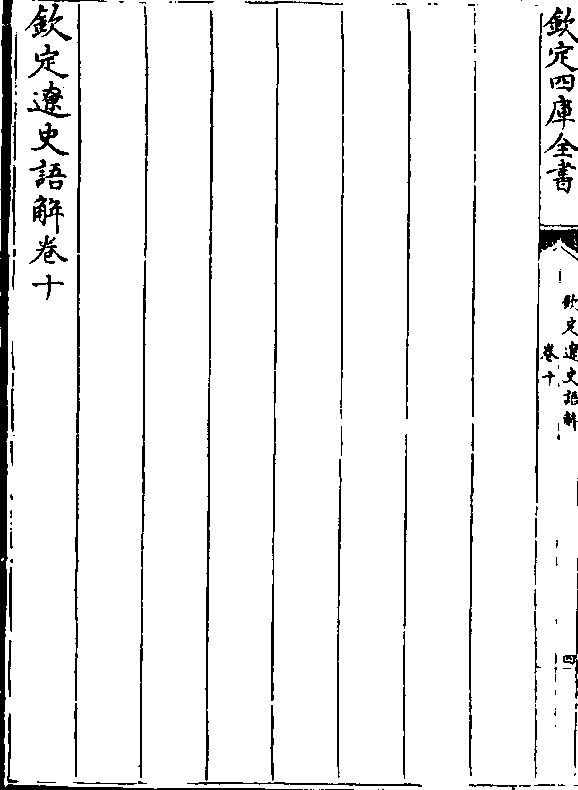 欽定四庫全書
欽定遼史語解
卷十
四
欽定遼史語解卷十